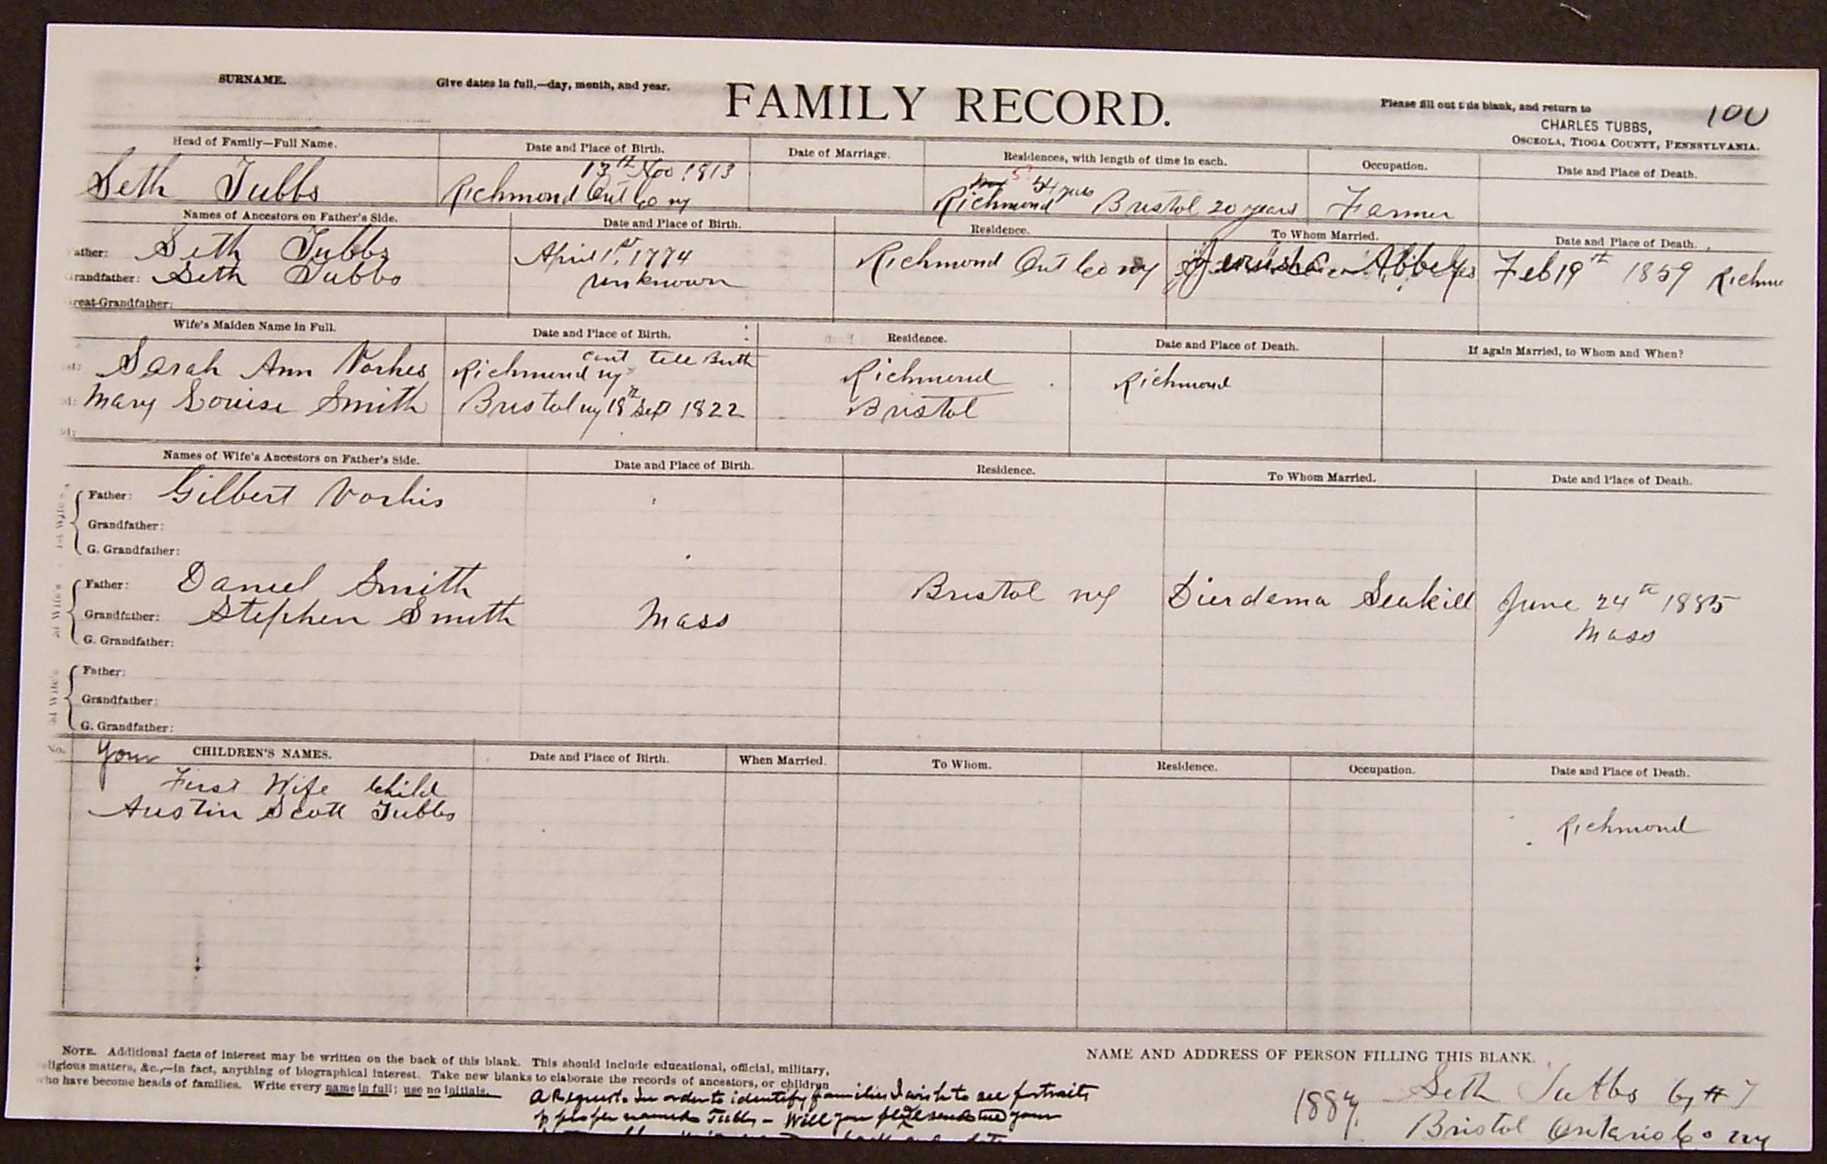 SURNAME.
Give dates in full,—day, month, and year.
FAMILY RECORD.
Please fill out this blank, and return to
100
CHARLES TUBBS,
OSCEOLA, TIOGA COUNTY, PENNSYLVANIA.
Head of Family—Full Name. Date and Place of Birth. Date of Marriage. Residences, with length of time in each. Occupation. Date and Place of Death.
13th Nov 1813
54 years
Seth Tubbs Richmond Ont Co ny Richmond Bristol 20 years Farmer
Names of Ancestors on Father's Side. Date and Place of Birth. Residence. To Whom Married. Date and Place of Death.
ather: Seth Tubbs April 1st, 1774 Richmond Ont Co ny Jerusha Feb 19th 1859 Richm
randfather: Seth Tubbs unknown
reat-Grandfather:
Wife's Maiden Name in Full. Date and Place of Birth. Residence. Date and Place of Death. If again Married, to Whom and When?
cant tell Birth
Sarah Ann Vorhes Richmond ny Richmond Richmond
Mary Louise Smith Bristol ny 18th Sept 1822 Bristol
Names of Wife's Ancestors on Father's Side. Date and Place of Birth. Residence. To Whom Married. Date and Place of Death.
1st Wife's
Father: Gilbert Vorhis
Grandfather:
G. Grandfather:
2d Wife's
Father: Daniel Smith Bristol ny Dierdema June 24th 1885
Grandfather: Stephen Smith Mass Mass
G. Grandfather:
3d Wife's
Father:
Grandfather:
G. Grandfather:
No. Your CHILDREN'S NAMES. Date and Place of Birth. When Married. To Whom. Residence. Occupation. Date and Place of Death.
First Wife Child
Austin Scott Tubbs Richmond
NOTE. Additional facts of interest may be written on the back of this blank. This should include educational, official, military,
eligious matters, &c.,—in fact, anything of biographical interest. Take new blanks to elaborate the records of ancestors, or children
who have become heads of families. Write every name in full; use no initials.
A Request. In order to identify families I wish to see portraits
of people named Tubbs — Will you please send me your
NAME AND ADDRESS OF PERSON FILLING THIS BLANK.
Seth Tubbs
Bristol Ontario Co ny